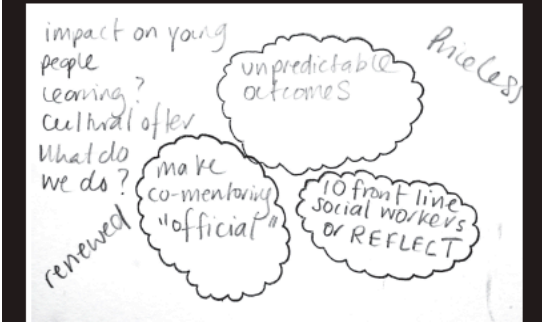 impact on young
people
learning?
cultural offer
what do
we do?
renewed
unpredictable
outcomes
Priceless
make
co-mentoring
"official"
10 front line
social workers
or REFLECT